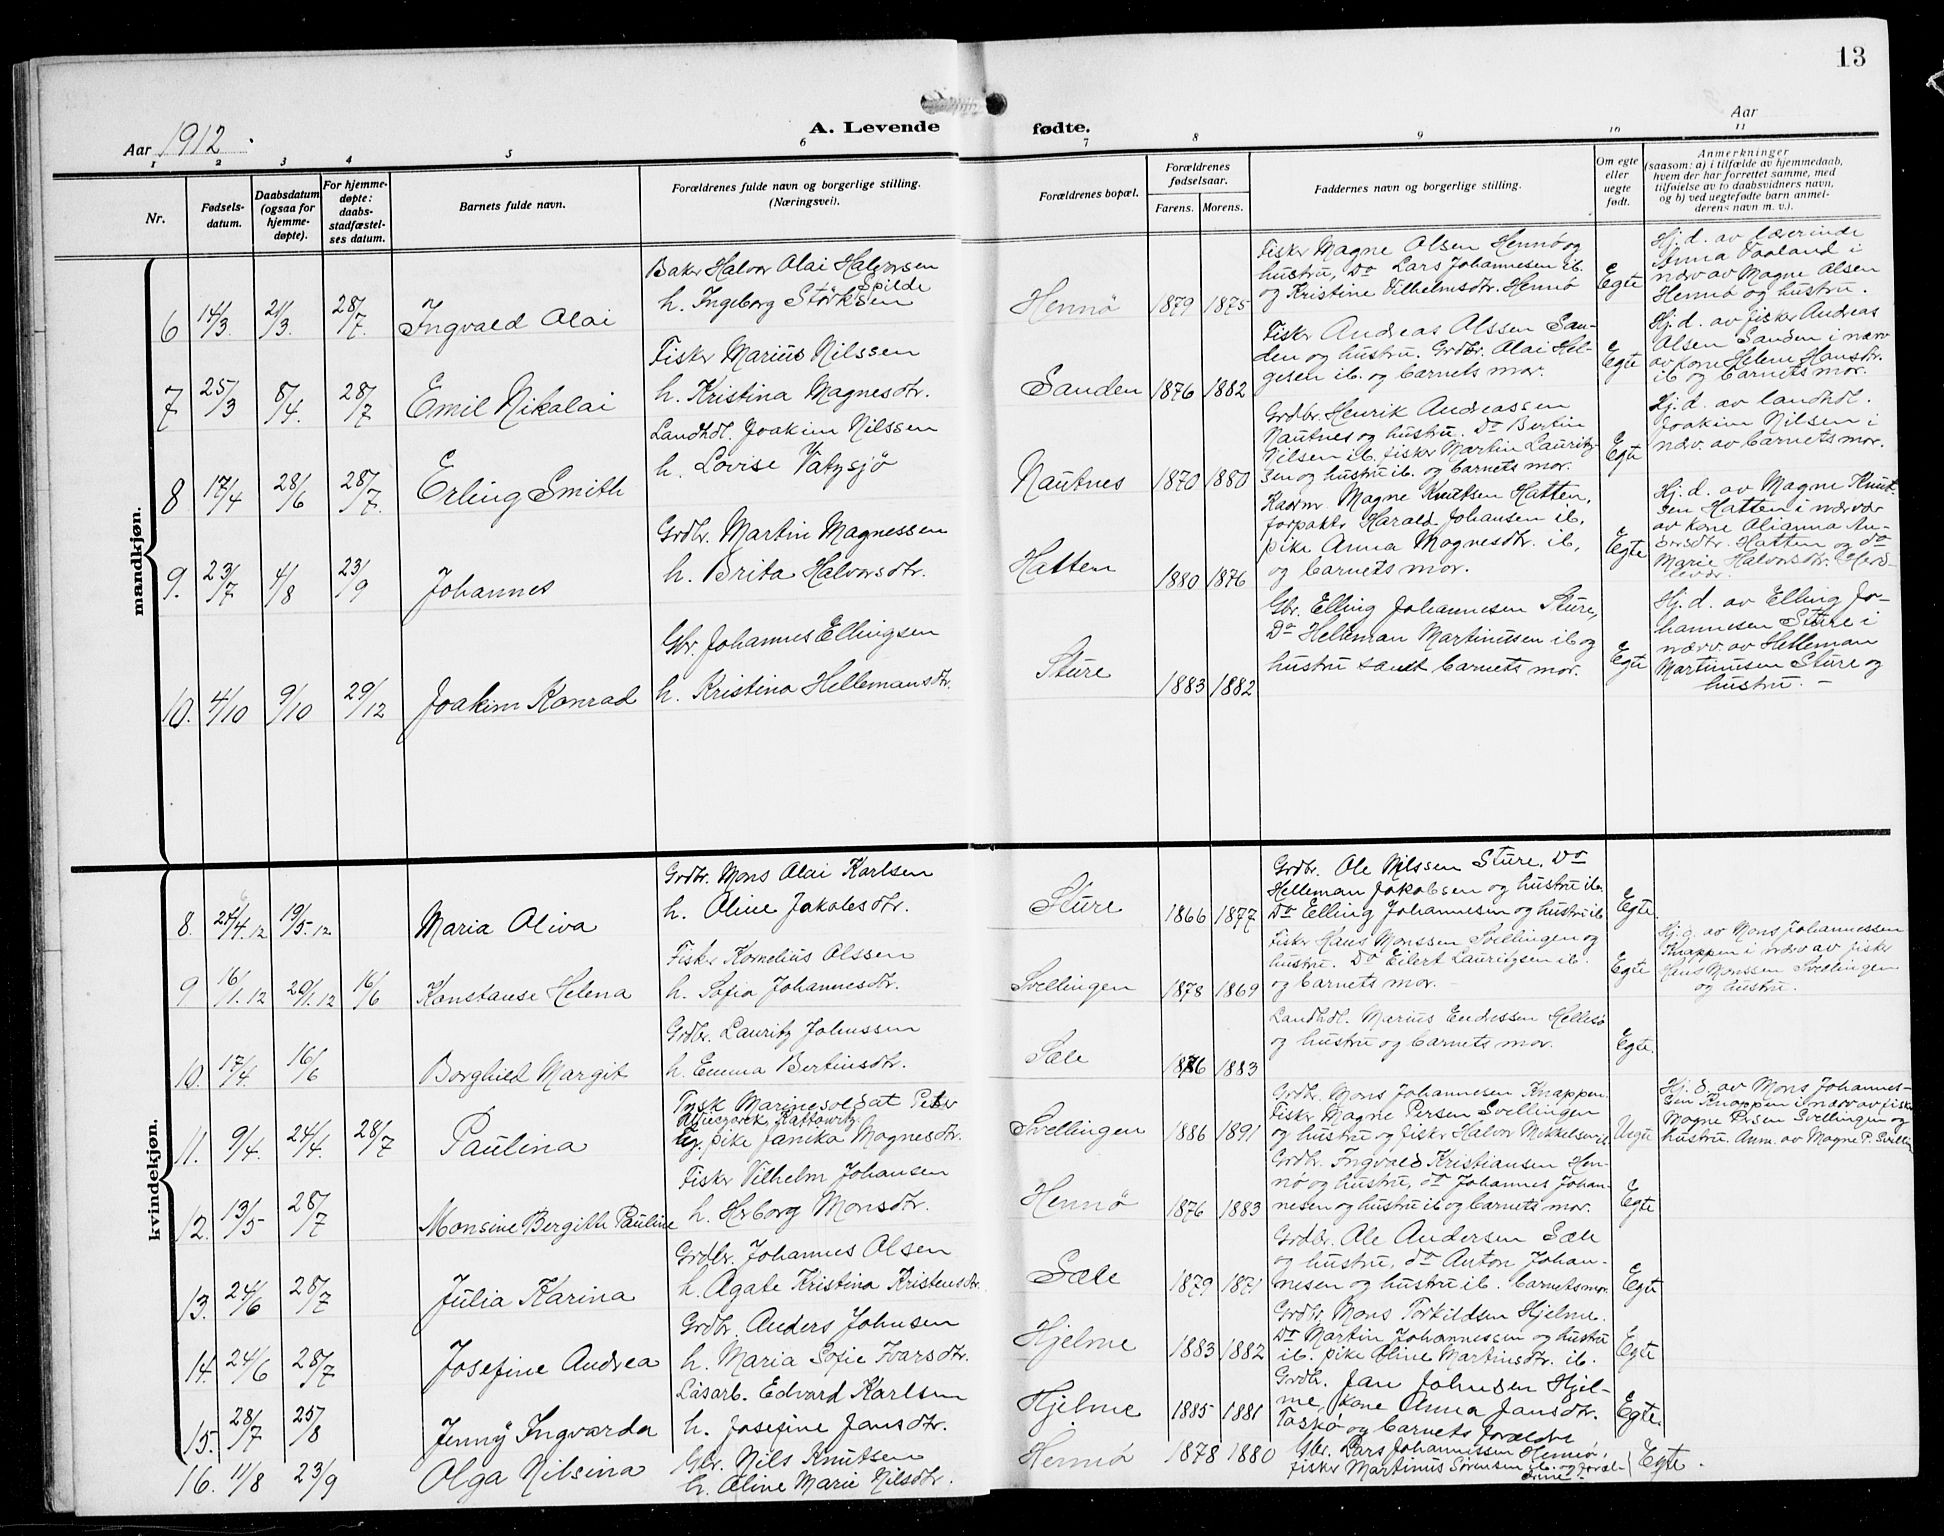 13
Aar 1912.
A. Levende fødte.
Aar
1 2 3 4 5 6 7 8 9 10 11
Nr.
Fødsels-
datum.
Daabsdatum
(ogsaa for
hjemme-
døpte).
For hjemme-
døpte:
daabs-
stadfæstel-
ses datum.
Barnets fulde navn.
Forældrenes fulde navn og borgerlige stilling.
(Næringsvei).
Forældrenes bopæl.
Forældrenes
fødselsaar.
Farens. Morens.
Faddernes navn og borgerlige stilling.
Om egte
eller
uegte
født.
Anmerkninger
(saasom: a) i tilfælde av hjemmedaab,
hvem der har forrettet samme, med
tilføielse av to daabsvidners navn,
og b) ved uegtefødte barn anmel-
derens navn m. v.).
mandkjøn.
6 14/3 21/3. 28/7. Ingvald Olai
Baker Halvor Olai Halvorsen
Spilde
h. Ingeborg Størksen
Hennø 1879 1875
Fisker Magne Olsen Hennø og
hustru, Do Lars Johannesen ib.
og Kristine Vilhelmsdtr. Hennø
Egte
Hj. d. av lærerinde
Anna Vaaland i
nærv av Magne Olsen
Hennø og hustru.
7 25/3 8/4. 28/7 Emil Nikolai
Fisker Marius Nilssen
h. Kristina Magnesdtr.
Sanden 1876 1882
Fisker Andreas Olssen San-
den og hustru. Grdbr. Olai Hel-
gesen ib. og barnets mor.
Egte
Hj. d. av fisker Andreas
Olsen Sanden i nærv
av kone Helene Hansdtr.
ib og barnets mor.
8 17/4 28/6 28/7. Erling Smith
Landhdl. Joakim Nilssen
h. Lovise Vatzsjø
Nautnes 1870 1880
Grdbr. Henrik Andreassen
Nautnes og hustru. Do Bertin
Nilsen ib. fisker Martin Lauritz-
sen og hustru ib. og barnets mor.
Egte
Hj. d. av landhdl.
Joakim Nilsen i
nærv. av barnets mor.
9. 23/7 4/8 23/9 Johannes
Grdbr. Martin Magnessen
h. Brita Halvorsdtr.
Hatten 1880 1876
Kaarm. Magne Knutsen Hatten,
forpaktr Harald Johansen ib,
pike Anna Magnesdtr. ib,
og barnets mor.
Egte
Hj. d. av Magne Knut-
sen Hatten i nærvær
av kone Olianna An-
dersdtr. Hatten og do
Marie Halvorsdtr. Herd-
levær.
10. 4/10 9/10 29/12 Joakim Konrad
Gbr. Johannes Ellingsen
h. Kristina Hellemansdtr.
Sture 1883 1882
Gbr. Elling Johannesen Sture,
Do Helleman Martinusen ib og
hustru samt barnets mor.
Egte
Hj. d. av Elling Jo-
hannesen Sture i
nærv av Helleman
Martinusen Sture og
hustru. –
kvindekjøn.
8. 24/4.12 19/5.12 Maria Oliva
Grdbr. Mons Olai Karlsen
h. Oline Jakobsdtr.
Sture 1866 1877
Grdbr. Ole Nilssen Sture, Do
Helleman Jakobsen og hustru ib.
Do Elling Johannesen og hustru ib
Egte.
9 16/1.12 29/1.12 16/6 Konstanse Helena
Fisker Kornelius Olssen
h. Sofia Johannesdtr.
Svellingen 1878 1869
Fisker Hans Monssen Svellingen og
hustru. Do Eilert Lauritzsen ib.
og barnets mor.
Egte
Hj. d. av Mons Johannessen
Knappen i nærv av fisker
Hans Monssen Svellingen
og hustru.
10. 17/4. 16/6 Borghild Margit
Grdbr. Lauritz Johnssen
h. Emma Bertinsdtr.
Sæle 1876 1883
Landhdl. Marius Endressen Hellesø
og hustru og barnets mor.
Egte.
11. 9/4. 24/4. 28/7 Paulina
Tysk Marinesoldat Peter
Kattowitz
Ug. pike Janika Magnesdtr.
Svellingen 1886 1891
Grdbr. Mons Johannesen Knappen.
Fisker Magne Persen Svellingen
og hustru og fisker Halvor Mikkelsen ib
Uegte
Hj. d. av Mons Johannes-
sen Knappen i nærv av fisker
Magne Persen Svellingen og
hustru. Anm. av Magne P. Svelling
12. 13/5 28/7 Monsine Bergitte Pauline
Fisker Vilhelm Johansen
h. Herborg Monsdtr.
Hennø 1876 1883
Grdbr. Ingvald Kristiansen Hen-
nø og hustru, do Johannes Johan-
nesen og hustru ib og barnets mor.
Egte
13. 24/6 28/7 Julia Karina
Grdbr. Johannes Olsen
h. Agate Kristina Kristensdtr.
Sæle 1879 1871
Grdbr. Ole Andersen Sæle
og hustru, do Anton Johan-
nesen og hustru ib. barnets mor.
Egte
14. 24/6 28/7 Josefine Andrea
Grdbr. Anders Johnsen
h. Maria Sofie Ivarsdtr.
Hjelme 1883 1882
Grdbr. Mons Torkildsen Hjelme.
Do Martin Johannessen og hustru
ib. pike Oline Martinsdtr. ib.
Egte
15. 28/7 25/8 Jenny Ingvarda
Løsarb. Edvard Karlsen
h. Josefine Jansdtr.
Hjelme 1885 1881
Grdbr. Jan Johnsen Hjel-
me, kone Anna Jansdtr.
Toskø og barnets forældre
Egte.
16. 11/8 23/9 Olga Nilsina
Gbr. Nils Knutsen
h. Oline Marie Nilsdtr.
Hennø 1878 1880
Gbr. Lars Johannessen Hennø,
fisker Martinus Sørensen ib. og foræl-
drene
Egte.